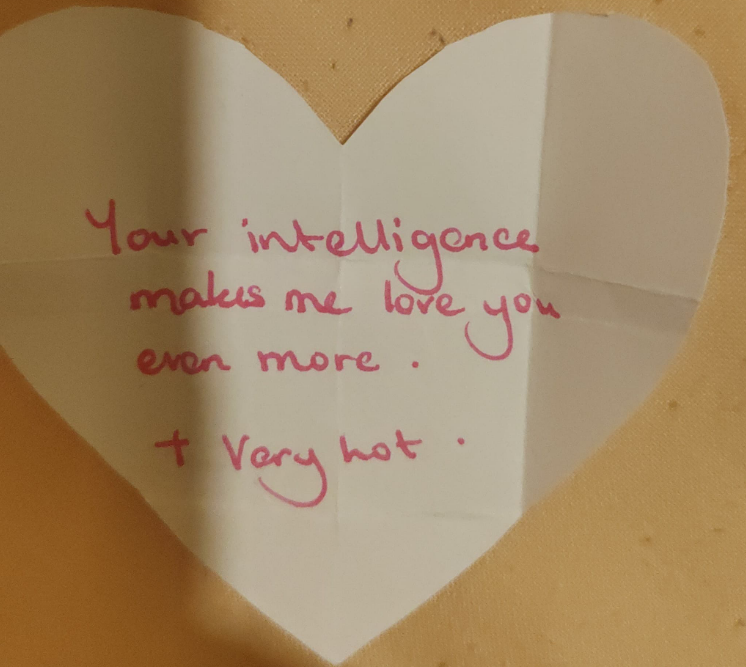 Your intelligence
makes me love you
even more .
+ Very hot .